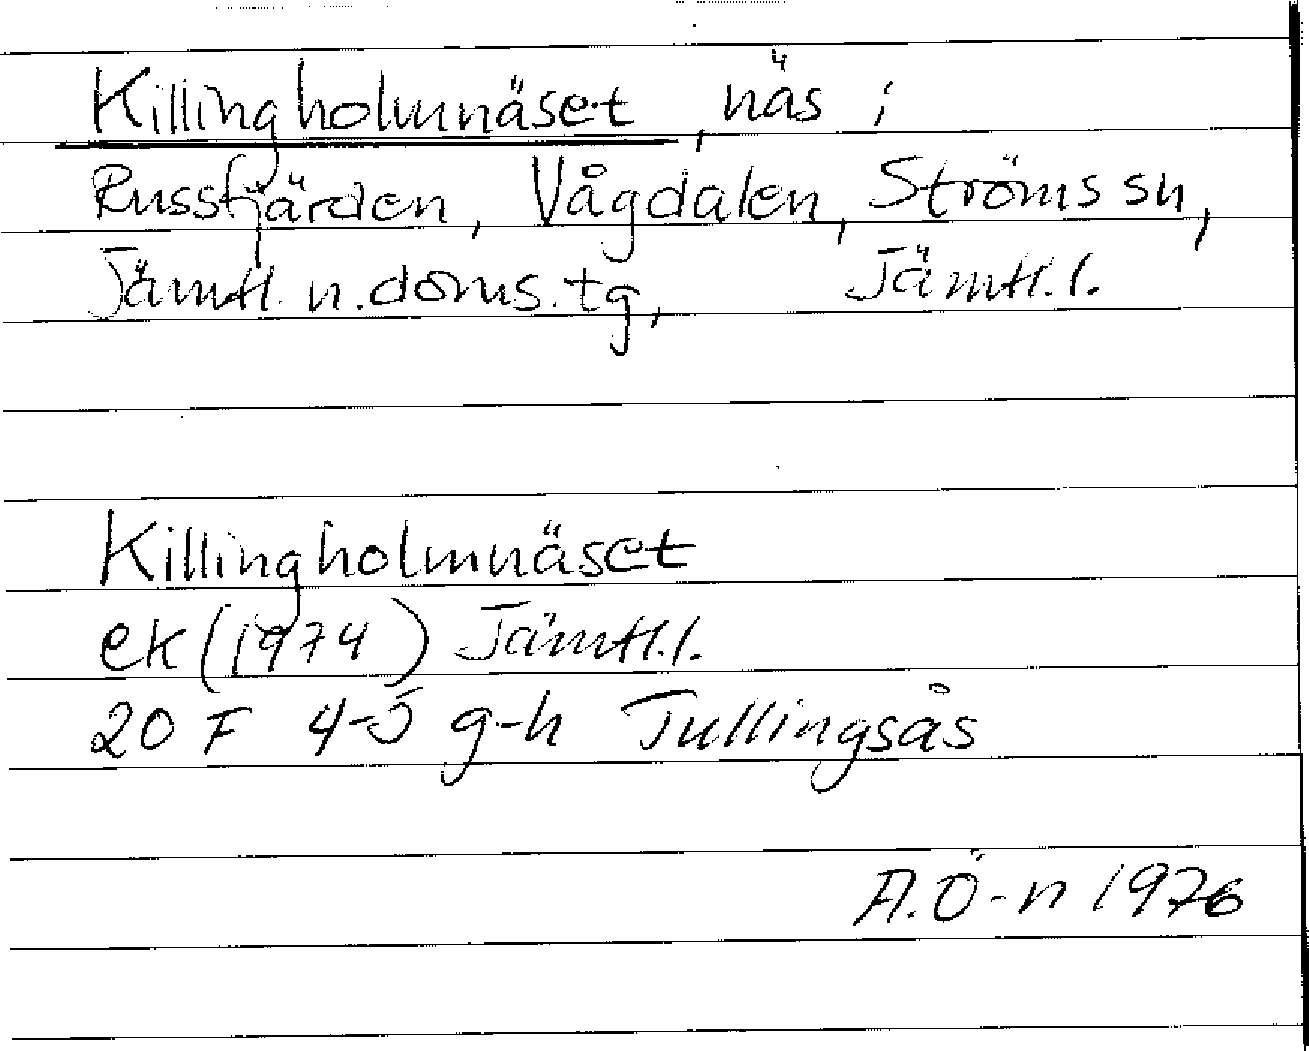 Killingholmnäset, näs i
Russfjärden, Vågdalen, Ströms sn,
Jämtl. n. doms. tg, Jämtl. l.
Killingholmnäset
ek (1974) Jämtl. l.
20 F 4-5 g-h Tullingsås
A. Ö-n 1976